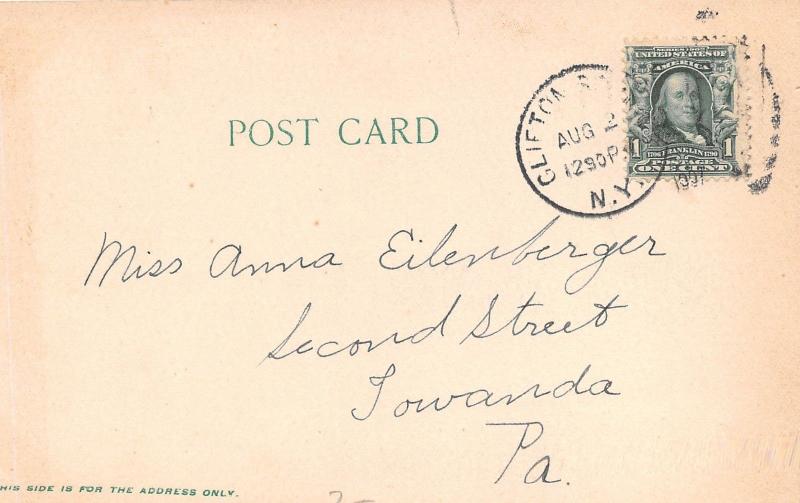 POST CARD
CLIFTON
AUG 2
N.Y.
1907
SERIES 1902
UNITED STATES OF
AMERICA
1 1706 FRANKLIN 1790 1
POSTAGE
ONE CENT
Miss Anna Eilenberger
Second Street
Towanda
Pa.
HIS SIDE IS FOR THE ADDRESS ONLY.